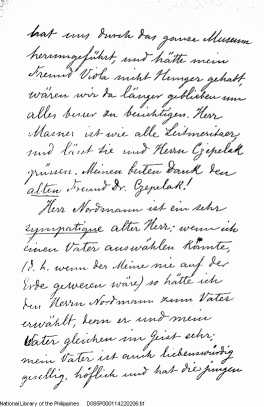 hat uns durch das ganze Museum
herumgeführt, und hätte mein
Freund Viola nicht Hunger gehabt,
wären wir da länger geblieben um
alles besser zu besichtigen. Herr
ist wie alle
und lässt Sie und Herrn Czepelak
grüssen. Meinen besten Dank den
alten Freund Dr. Czepelak!
Herr Nordmann ist ein sehr
sympatique alter Herr; wenn ich
einen Vater auswählen könnte,
(d. h. wenn der Meine nie auf der
Erde gewesen wäre) so hätte ich
den Herrn Nordmann zum Vater
erwählt, denn er und mein
Vater gleichen im Geist sehr;
mein Vater ist auch liebenswürdig
gesellig, höflich und hat die jungen
National Library of the Philippines D085R000114220206.tif